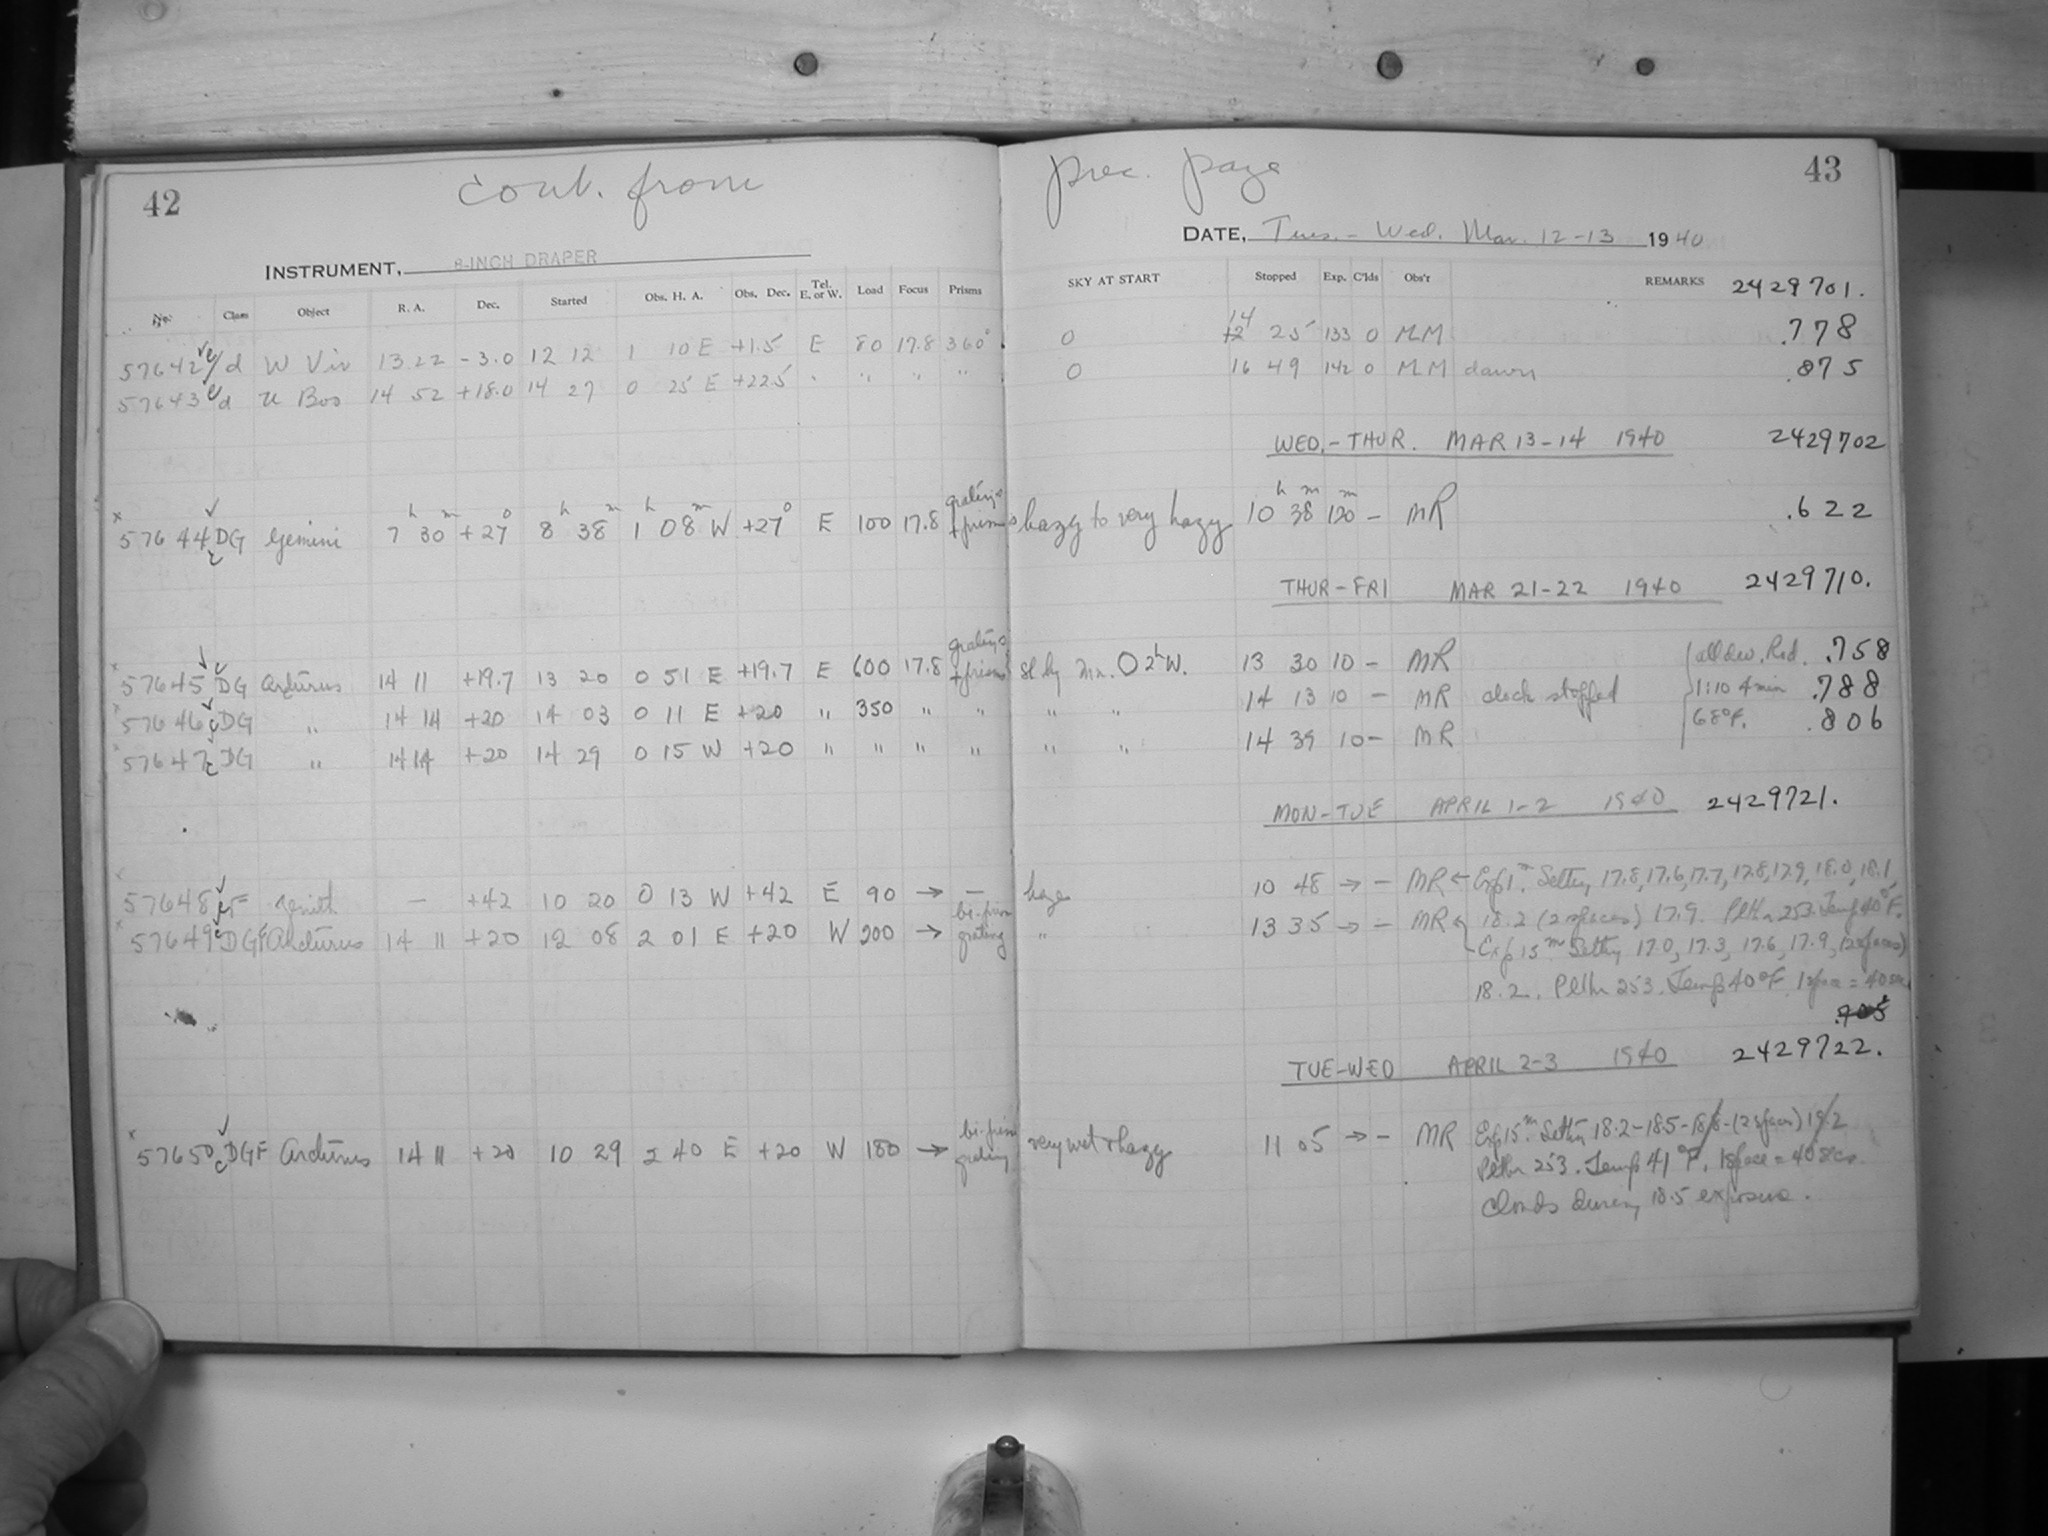 42 cont. from prec. page 43
INSTRUMENT, 8-INCH DRAPER DATE, Tues. - Wed. Mar. 12-13 1940
No. Class Object R. A. Dec. Started Obs. H. A. Obs. Dec. Tel. E. or W. Load Focus Prisms SKY AT START Stopped Exp. C'lds Obs'r REMARKS 2429701.
57642 d W Vir 13 22 -3.0 12 12 1 10 E +1.5 E 80 17.8 360° 0 14 25 133 0 MM .778
57643 d U Boo 14 52 +18.0 14 27 0 25 E +22.5 " " " " 0 16 49 142 0 MM dawn .875
WED.-THUR. MAR 13-14 1940 2429702
57644 DG Gemini 7h 30m +27° 8h 38m 1h 08m W +27° E 100 17.8 grating + prisms hazy to very hazy 10h 38m 120m - MR .622
THUR-FRI MAR 21-22 1940 2429710.
57645 DG Arcturus 14 11 +19.7 13 20 0 51 E +19.7 E 600 17.8 grating + prisms 2h W. 13 30 10 - MR all dev. Rod. .758
57646 DG " 14 14 +20 14 03 0 11 E +20 " 350 " " " " 14 13 10 - MR clock stopped 1:10 4 min .788
57647 DG " 14 14 +20 14 29 0 15 W +20 " " " " " " 14 39 10 - MR 68°F. .806
MON-TUE APRIL 1-2 1940 2429721.
57648 F Zenith - +42 10 20 0 13 W +42 E 90 → - haze 10 48 → - MR ← Exp 1m. Setting 17.8, 17.6, 17.7, 17.8, 17.9, 18.0, 18.1,
18.2 (2 spaces) 17.9. Plthr 253. Temp 40°F.
57649 DGF Arcturus 14 11 +20 12 08 2 01 E +20 W 200 → bi-prism grating " 13 35 → - MR
Exp 15m Setting 17.0, 17.3, 17.6, 17.9, (2 spaces)
18.2. Plthr 253. Temp 40°F. 1 space = 40 sec
.905
TUE-WED APRIL 2-3 1940 2429722.
57650 DGF Arcturus 14 11 +20 10 29 2 40 E +20 W 180 → bi-prism grating very wet & hazy 11 05 → - MR Exp 15m. Setting 18.2-18.5-18.8-(2 spaces) 19.2
Plthr 253. Temp 41°F. 1 space = 40 secs.
Clouds during 18.5 exposure.